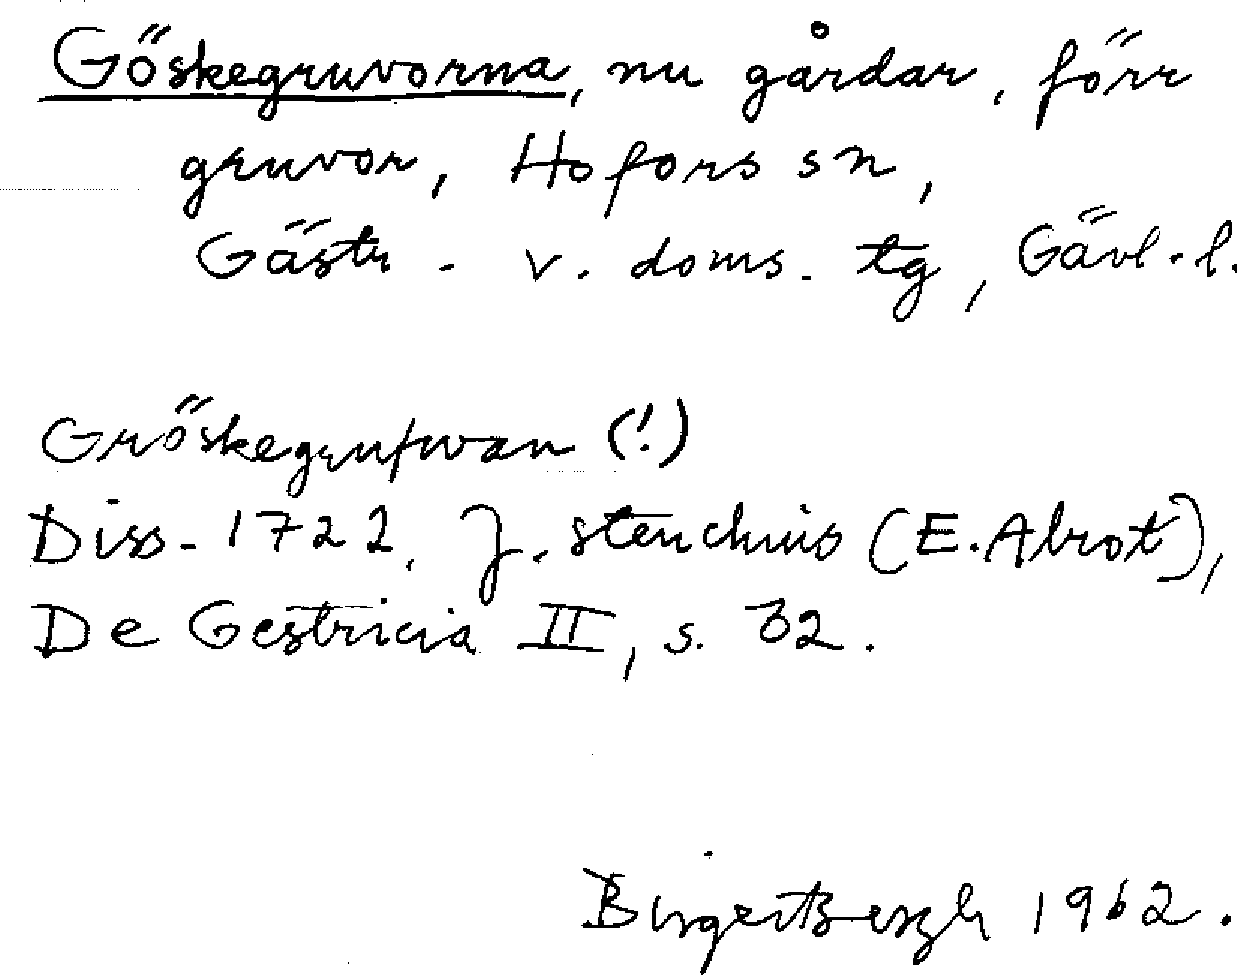 Göskegruvorna, nu gårdar, förr
gruvor, Hofors sn,
Gästr. v. doms. tg, Gävl. l.
Gröskegrufwan (!)
Diss. 1722, J. Stenchius (E. Alrot),
De Gestricia II, s. 32.
Birger Bergh 1962.